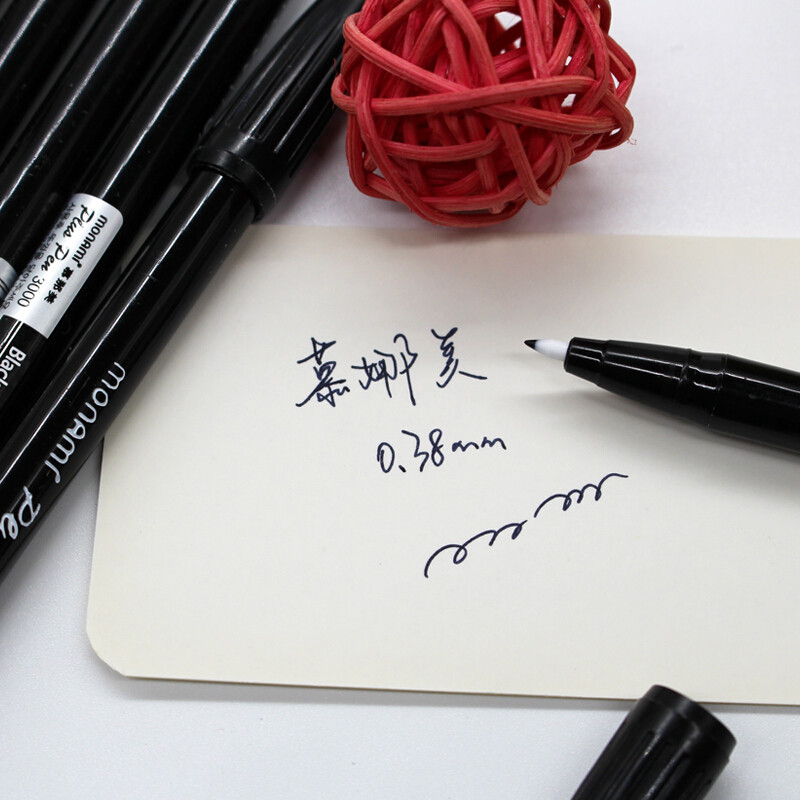 monami 慕娜美
Plus Pen 3000
Black
monami Pe
慕娜美
0.38mm